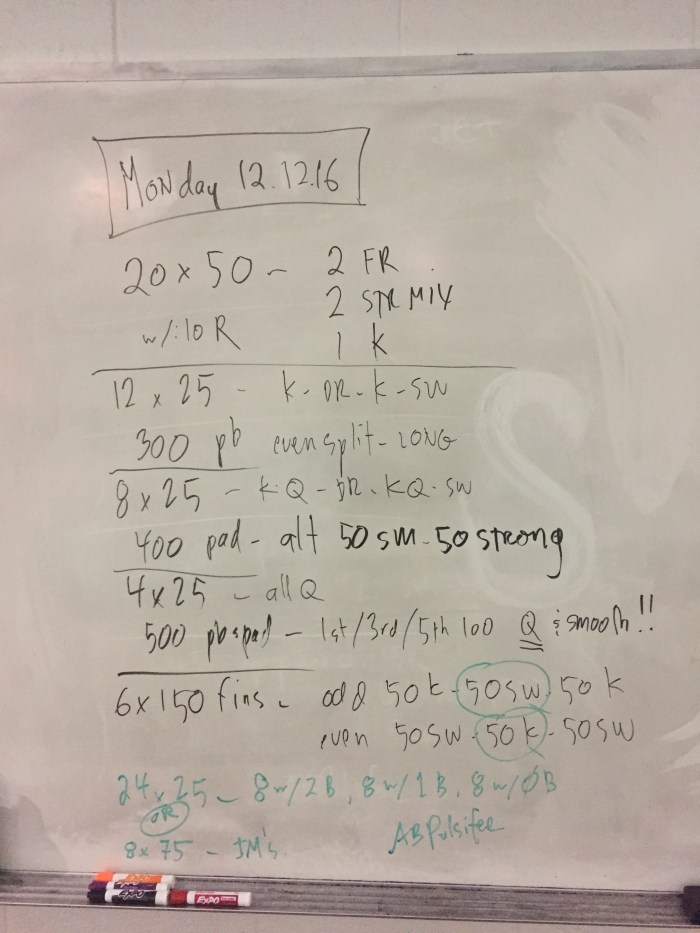 Monday 12.12.16
20 x 50 - 2 FR
2 STR MIX
w/:10 R 1 K
12 x 25 - K - DR - K - SW
300 pb even split - LONG
8 x 25 - K Q - DR - KQ - SW
400 pad - alt 50 sm - 50 strong
4 x 25 - all Q
500 pb & pad - 1st/3rd/5th 100 Q & smooth!!
6 x 150 fins - odd 50 K - 50 SW - 50 K
even 50 SW - 50 K - 50 SW
24 x 25 - 8 w/2B, 8 w/1B, 8 w/ØB
OR
8 x 75 - IM's
EXPO
EXPO
EXPO